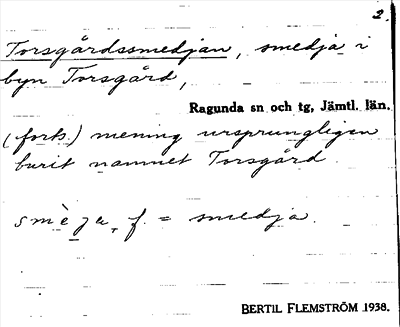 2.
Torsgårdssmedjan, smedja i
byn Torsgård,
Ragunda sn och tg, Jämtl. län.
(forts.) mening ursprungligen
burit namnet Torsgård.
f. = smedja.
BERTIL FLEMSTRÖM 1938.